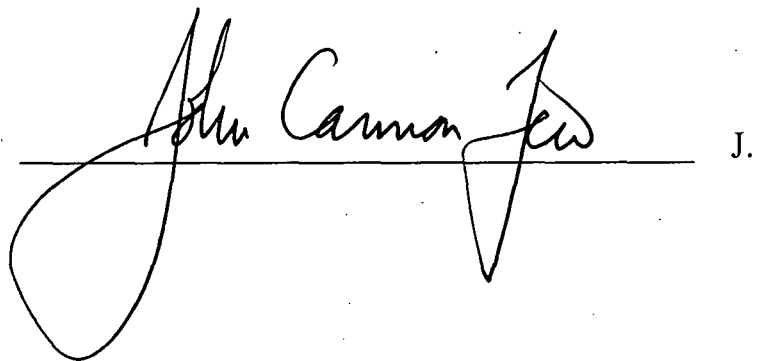 John Cannon Few J.